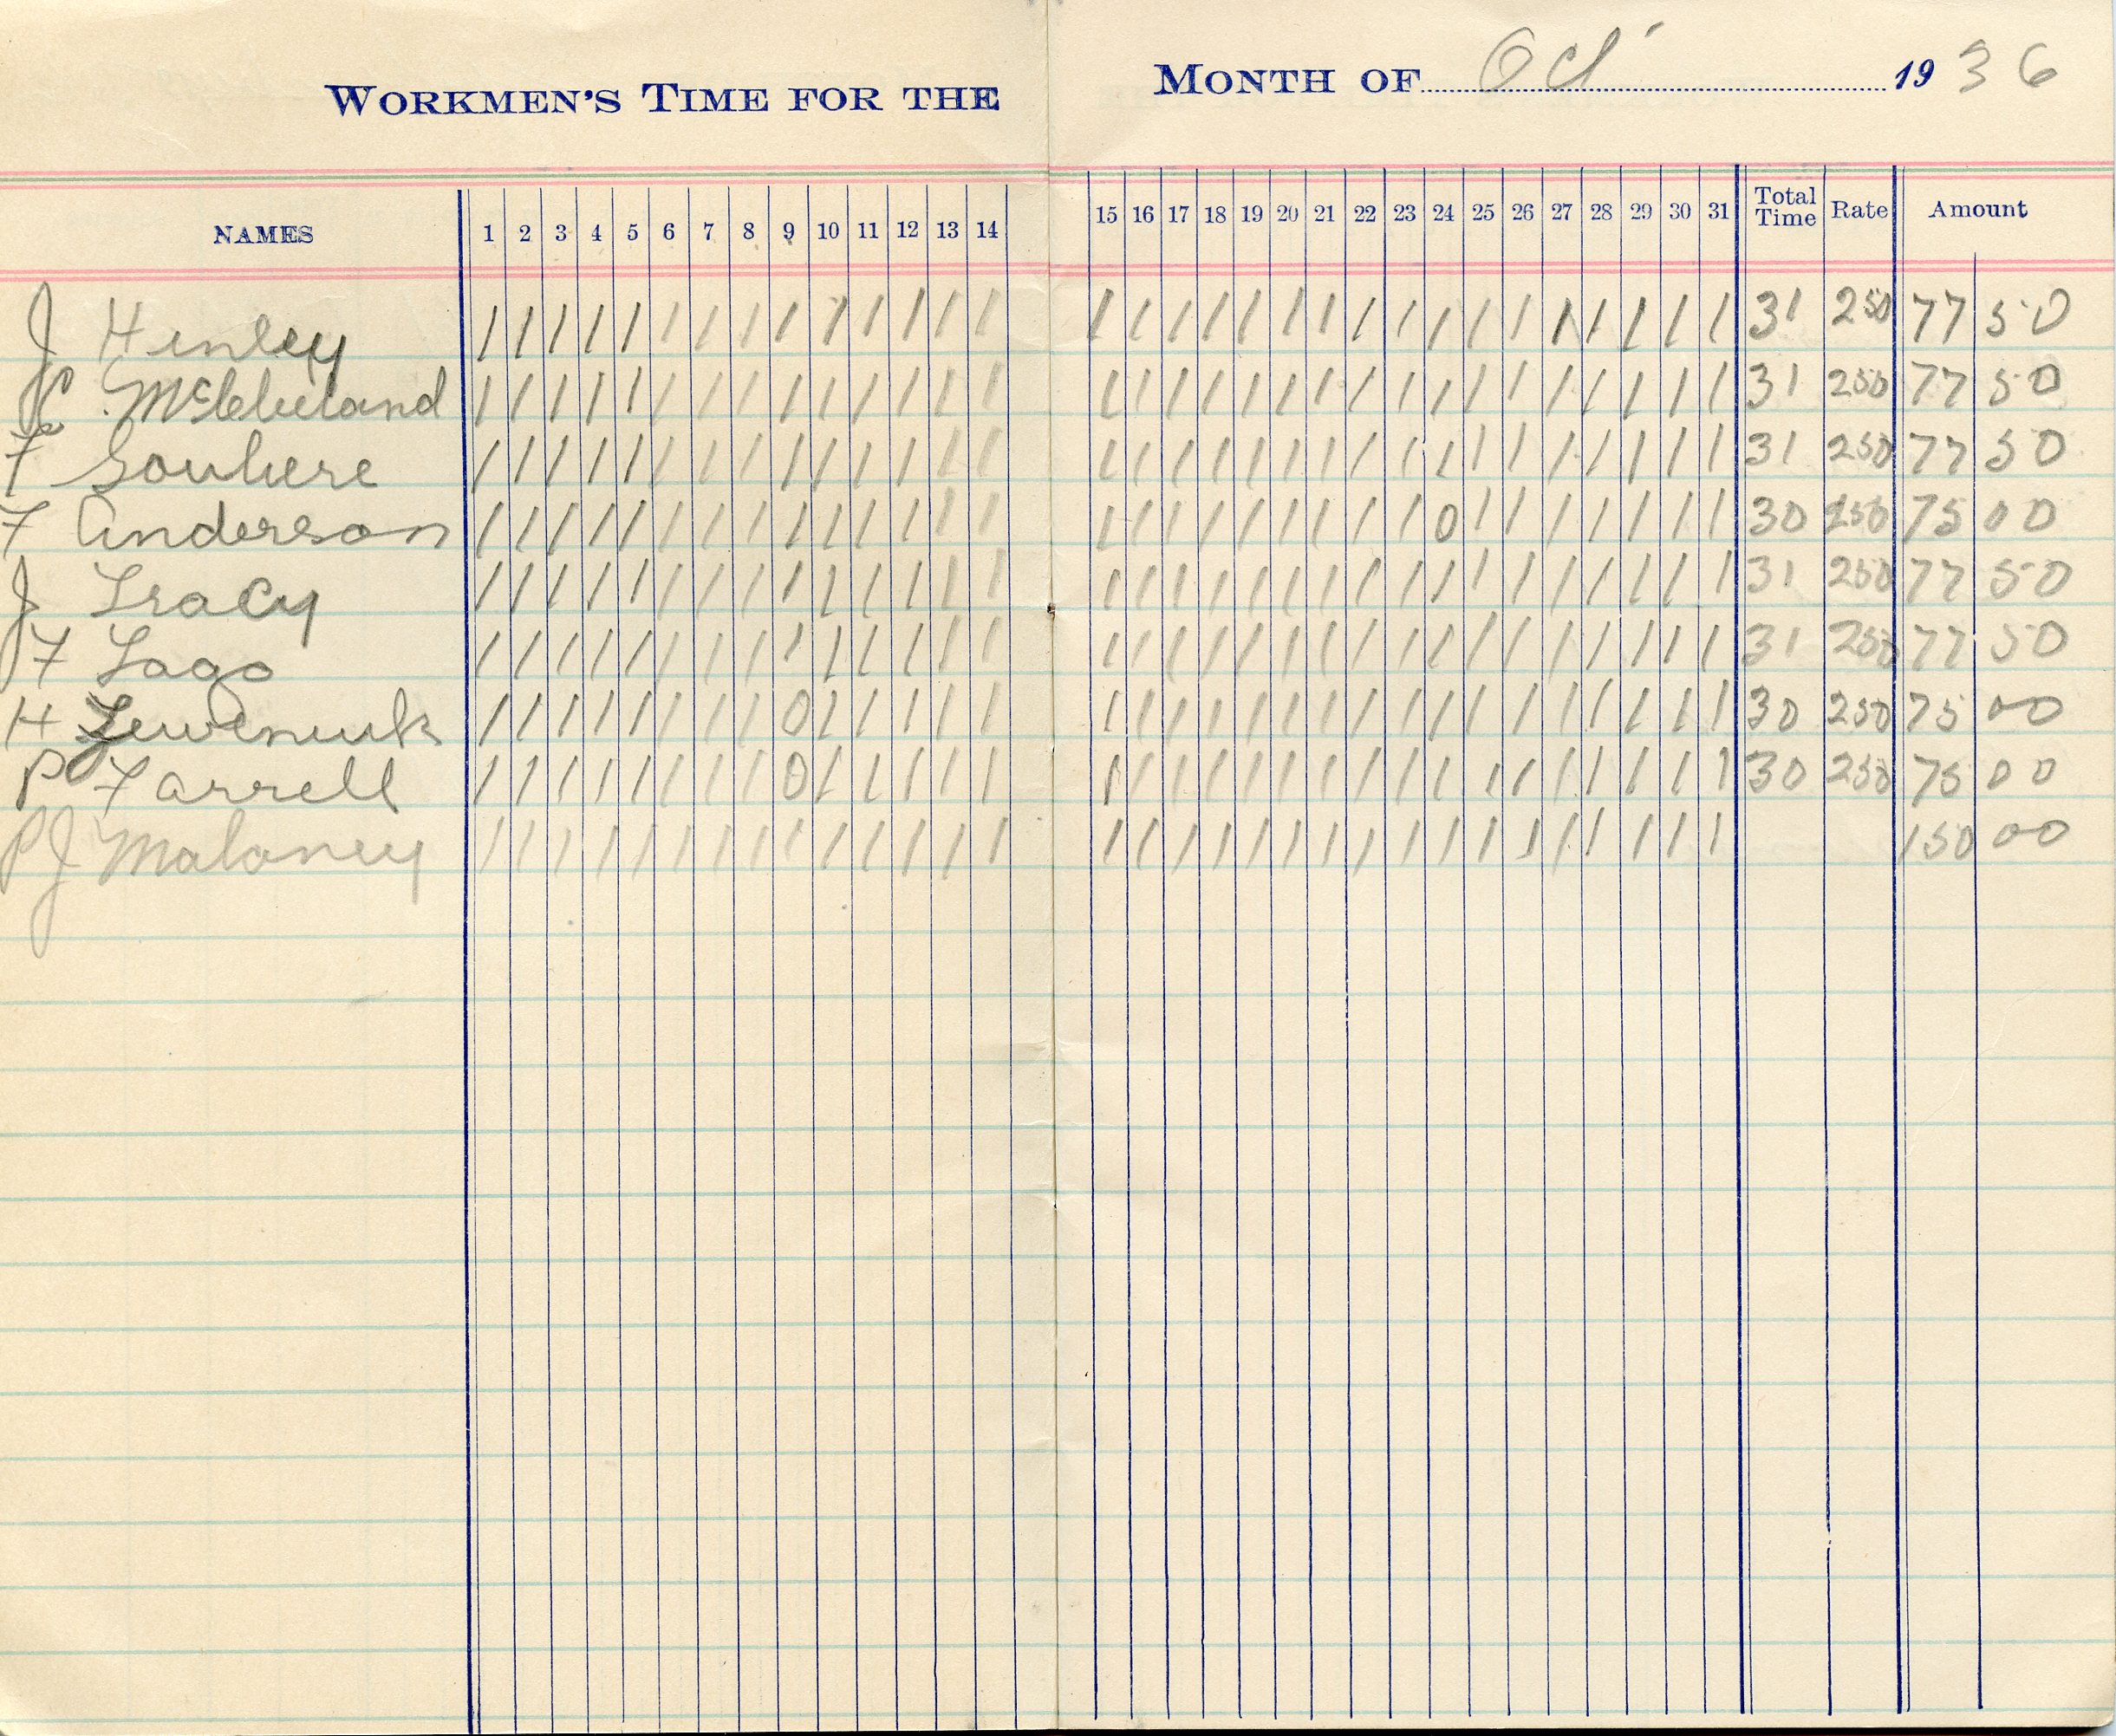 WORKMEN'S TIME FOR THE MONTH OF Oct 1936
NAMES 1 2 3 4 5 6 7 8 9 10 11 12 13 14 15 16 17 18 19 20 21 22 23 24 25 26 27 28 29 30 31 Total Time Rate Amount
J Henley / / / / / / / / / / / / / / / / / / / / / / / / / / / / / / / 31 250 77 50
/ / / / / / / / / / / / / / / / / / / / / / / / / / / / / / / 31 250 77 50
F Souliere / / / / / / / / / / / / / / / / / / / / / / / / / / / / / / / 31 250 77 50
F Anderson / / / / / / / / / / / / / / / / / / / / / / / 0 / / / / / / / 30 250 75 00
J Tracy / / / / / / / / / / / / / / / / / / / / / / / / / / / / / / / 31 250 77 50
F Lago / / / / / / / / / / / / / / / / / / / / / / / / / / / / / / / 31 250 77 50
H / / / / / / / / 0 / / / / / / / / / / / / / / / / / / / / / / 30 250 75 00
P Farrell / / / / / / / / 0 / / / / / / / / / / / / / / / / / / / / / / 30 250 75 00
PJ Maloney / / / / / / / / / / / / / / / / / / / / / / / / / / / / / / / 150 00